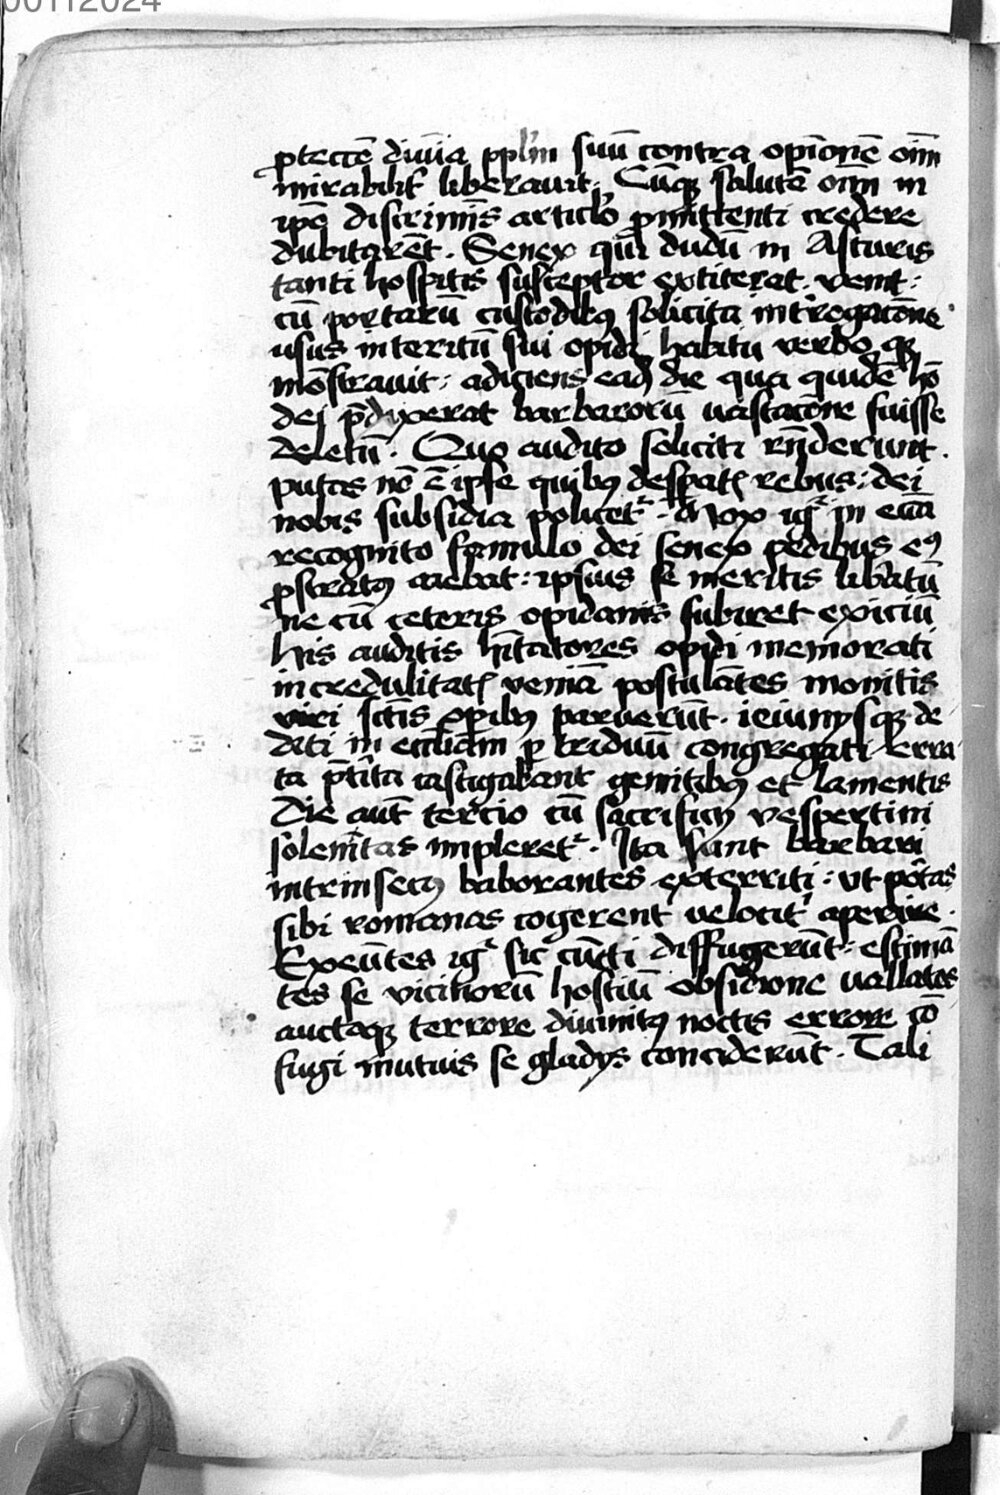 00112024
ꝓtecc̄e diui̅a ppl̅m suū contra opi̅onē oi̅m
mirabilit̛ liberauit. Cūqꝫ salutē oi̅m in
ip̅e discrimi̅s articl̛o ꝓmittenti credere
dubitarēt. Senex qui dudū in Asturis
tanti hospitis susceptor extiterat venit:
cū portarū custodibꝰ solicita int̛rogac̄one
usus interitū sui opidi habitu verbo qꝫ
mōstrauit: adiciens ead̛ die qua quidē hō
dei p̅dixerat barbarorū vastac̄one fuisse
deletū. Quo audito soliciti rn̅derunt.
putas nō ē ipse quibꝰ despatis rebus: dei
nobis subsidia policet᷑. Mox ig᷑ in eccl̅ia
recognito famulo dei senex pedibus eꝰ
ꝓstratꝰ aiebat: ipsius se meritis lib̛atū
ne cū ceteris opidanis subiret exiciū
his auditis hi̅tatores opidi memorati
incredulitatis veniā postulātes monitis
viri sc̅tis op̅ibꝰ paruerūt. ieiunysqꝫ de
diti in eccl̅iam ꝑ triduū congregati erra
ta p̅t̛ita castigabant gemitibꝰ et lamentis
Die aut̅ tercio cū sacrificy vespertini
solemi̅tas impleret᷑. Ita sunt barbari
intrinsecꝰ baborantes exterriti: ut portas
sibi romanas cogerent velocit̛ aperire.
Exeūtes ig᷑ sic cūcti diffugerūt: estimā
tes se vicinorū hostiū obsidione vallatos
auctaqꝫ terrore diuinitꝰ noctis errore cō
fugi mutuis se gladys conciderūt. Tali